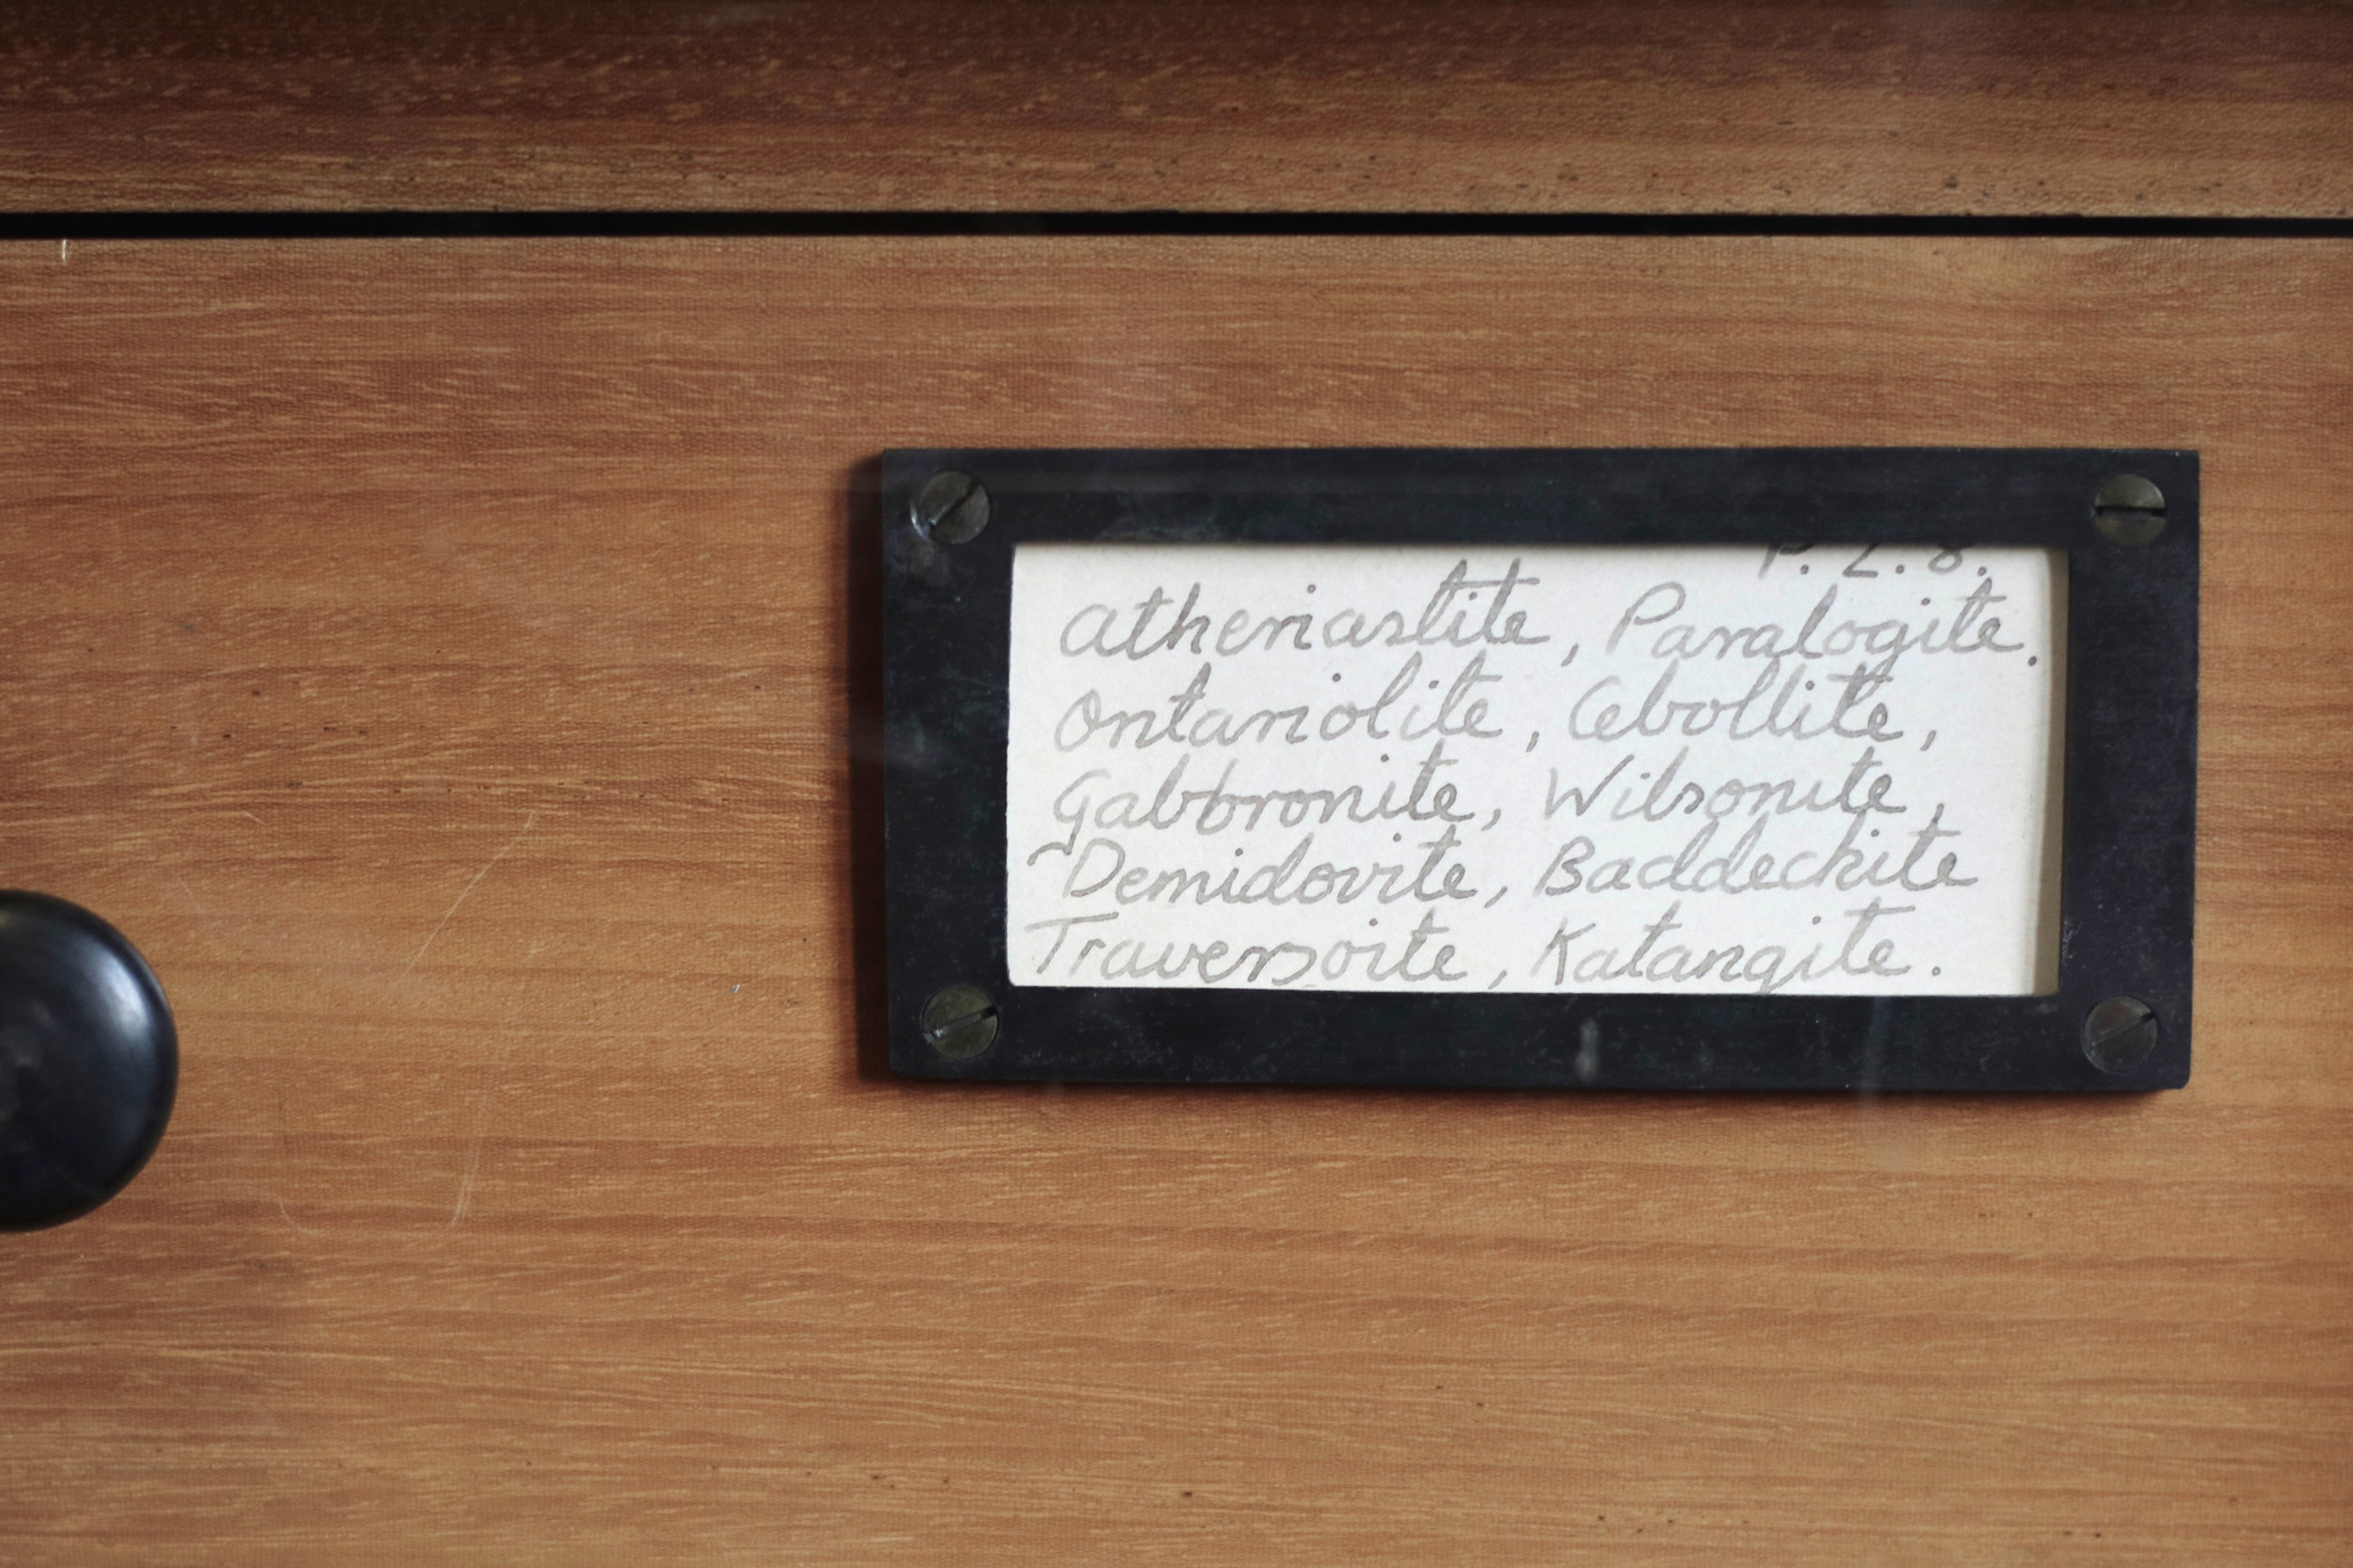 P. 2. 8.
Atheriastite, Paralogite.
Ontariolite, Cebollite,
Gabbronite, Wilsonite,
Demidovite, Baddeckite
Traversoite, Katangite.